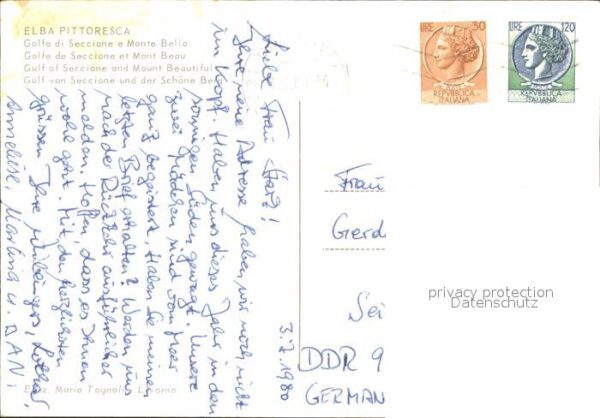 ELBA PITTORESCA
Golfo di Seccione e Monte Bello
Golfe de Seccione et Mont Beau
Gulf of Seccione and Mount Beautiful
Gulf von Seccione und der Schöne Berg
LIRE 30
REPVBBLICA
ITALIANA
LIRE 120
REPVBBLICA
ITALIANA
Liebe Frau!
Ihre neue Adresse haben wir noch nicht
im Kopf. Haben uns dieses Jahr in den
sonnigen Süden gewagt. Unsere
zwei Mädchen sind vom Meer
ganz begeistert. Haben Sie meinen
letzten Brief erhalten? Werden uns
nach der Rückkehr ausführlicher
melden. Hoffen, dass es Ihnen
wohl geht. Mit den herzlichsten
Grüssen Ihre Lothar,
Anneliese, Martina u. DANI
3.7.1980
Frau
Gerd
Sei
DDR 9
GERMAN
privacy protection
Datenschutz
Ediz. Mario Tognoli Livorno